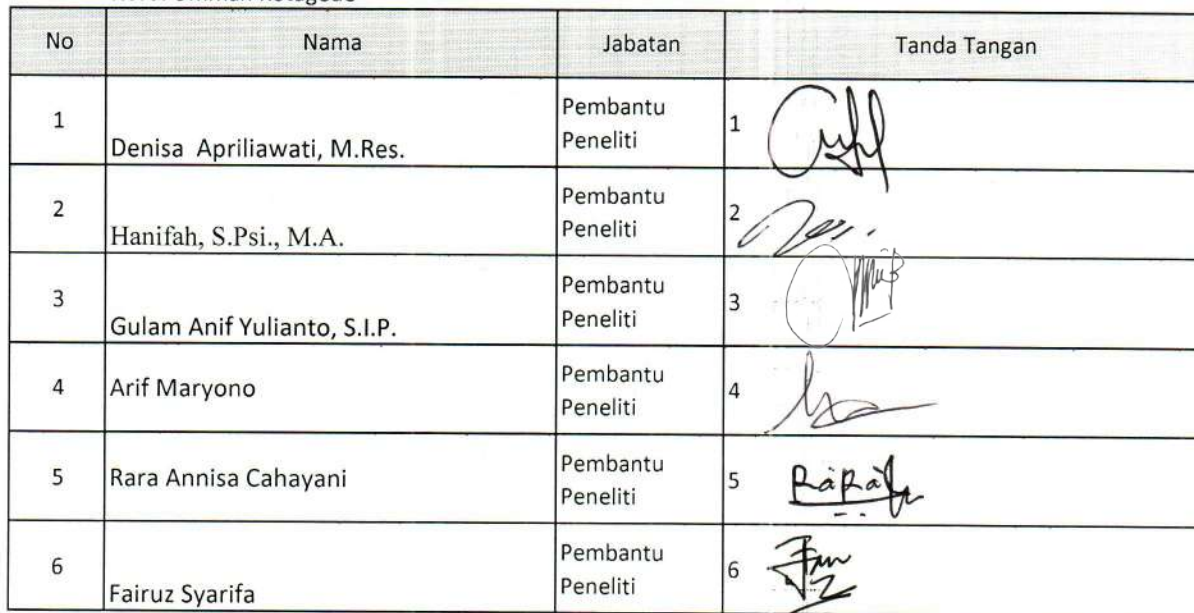 No Nama Jabatan Tanda Tangan
1 Denisa Apriliawati, M.Res. Pembantu Peneliti 1
2 Hanifah, S.Psi., M.A. Pembantu Peneliti 2
3 Gulam Anif Yulianto, S.I.P. Pembantu Peneliti 3
4 Arif Maryono Pembantu Peneliti 4
5 Rara Annisa Cahayani Pembantu Peneliti 5
6 Fairuz Syarifa Pembantu Peneliti 6